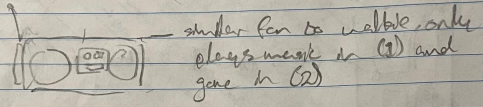 similar fan to walkie, only
plays music in (1) and
gone in (2)